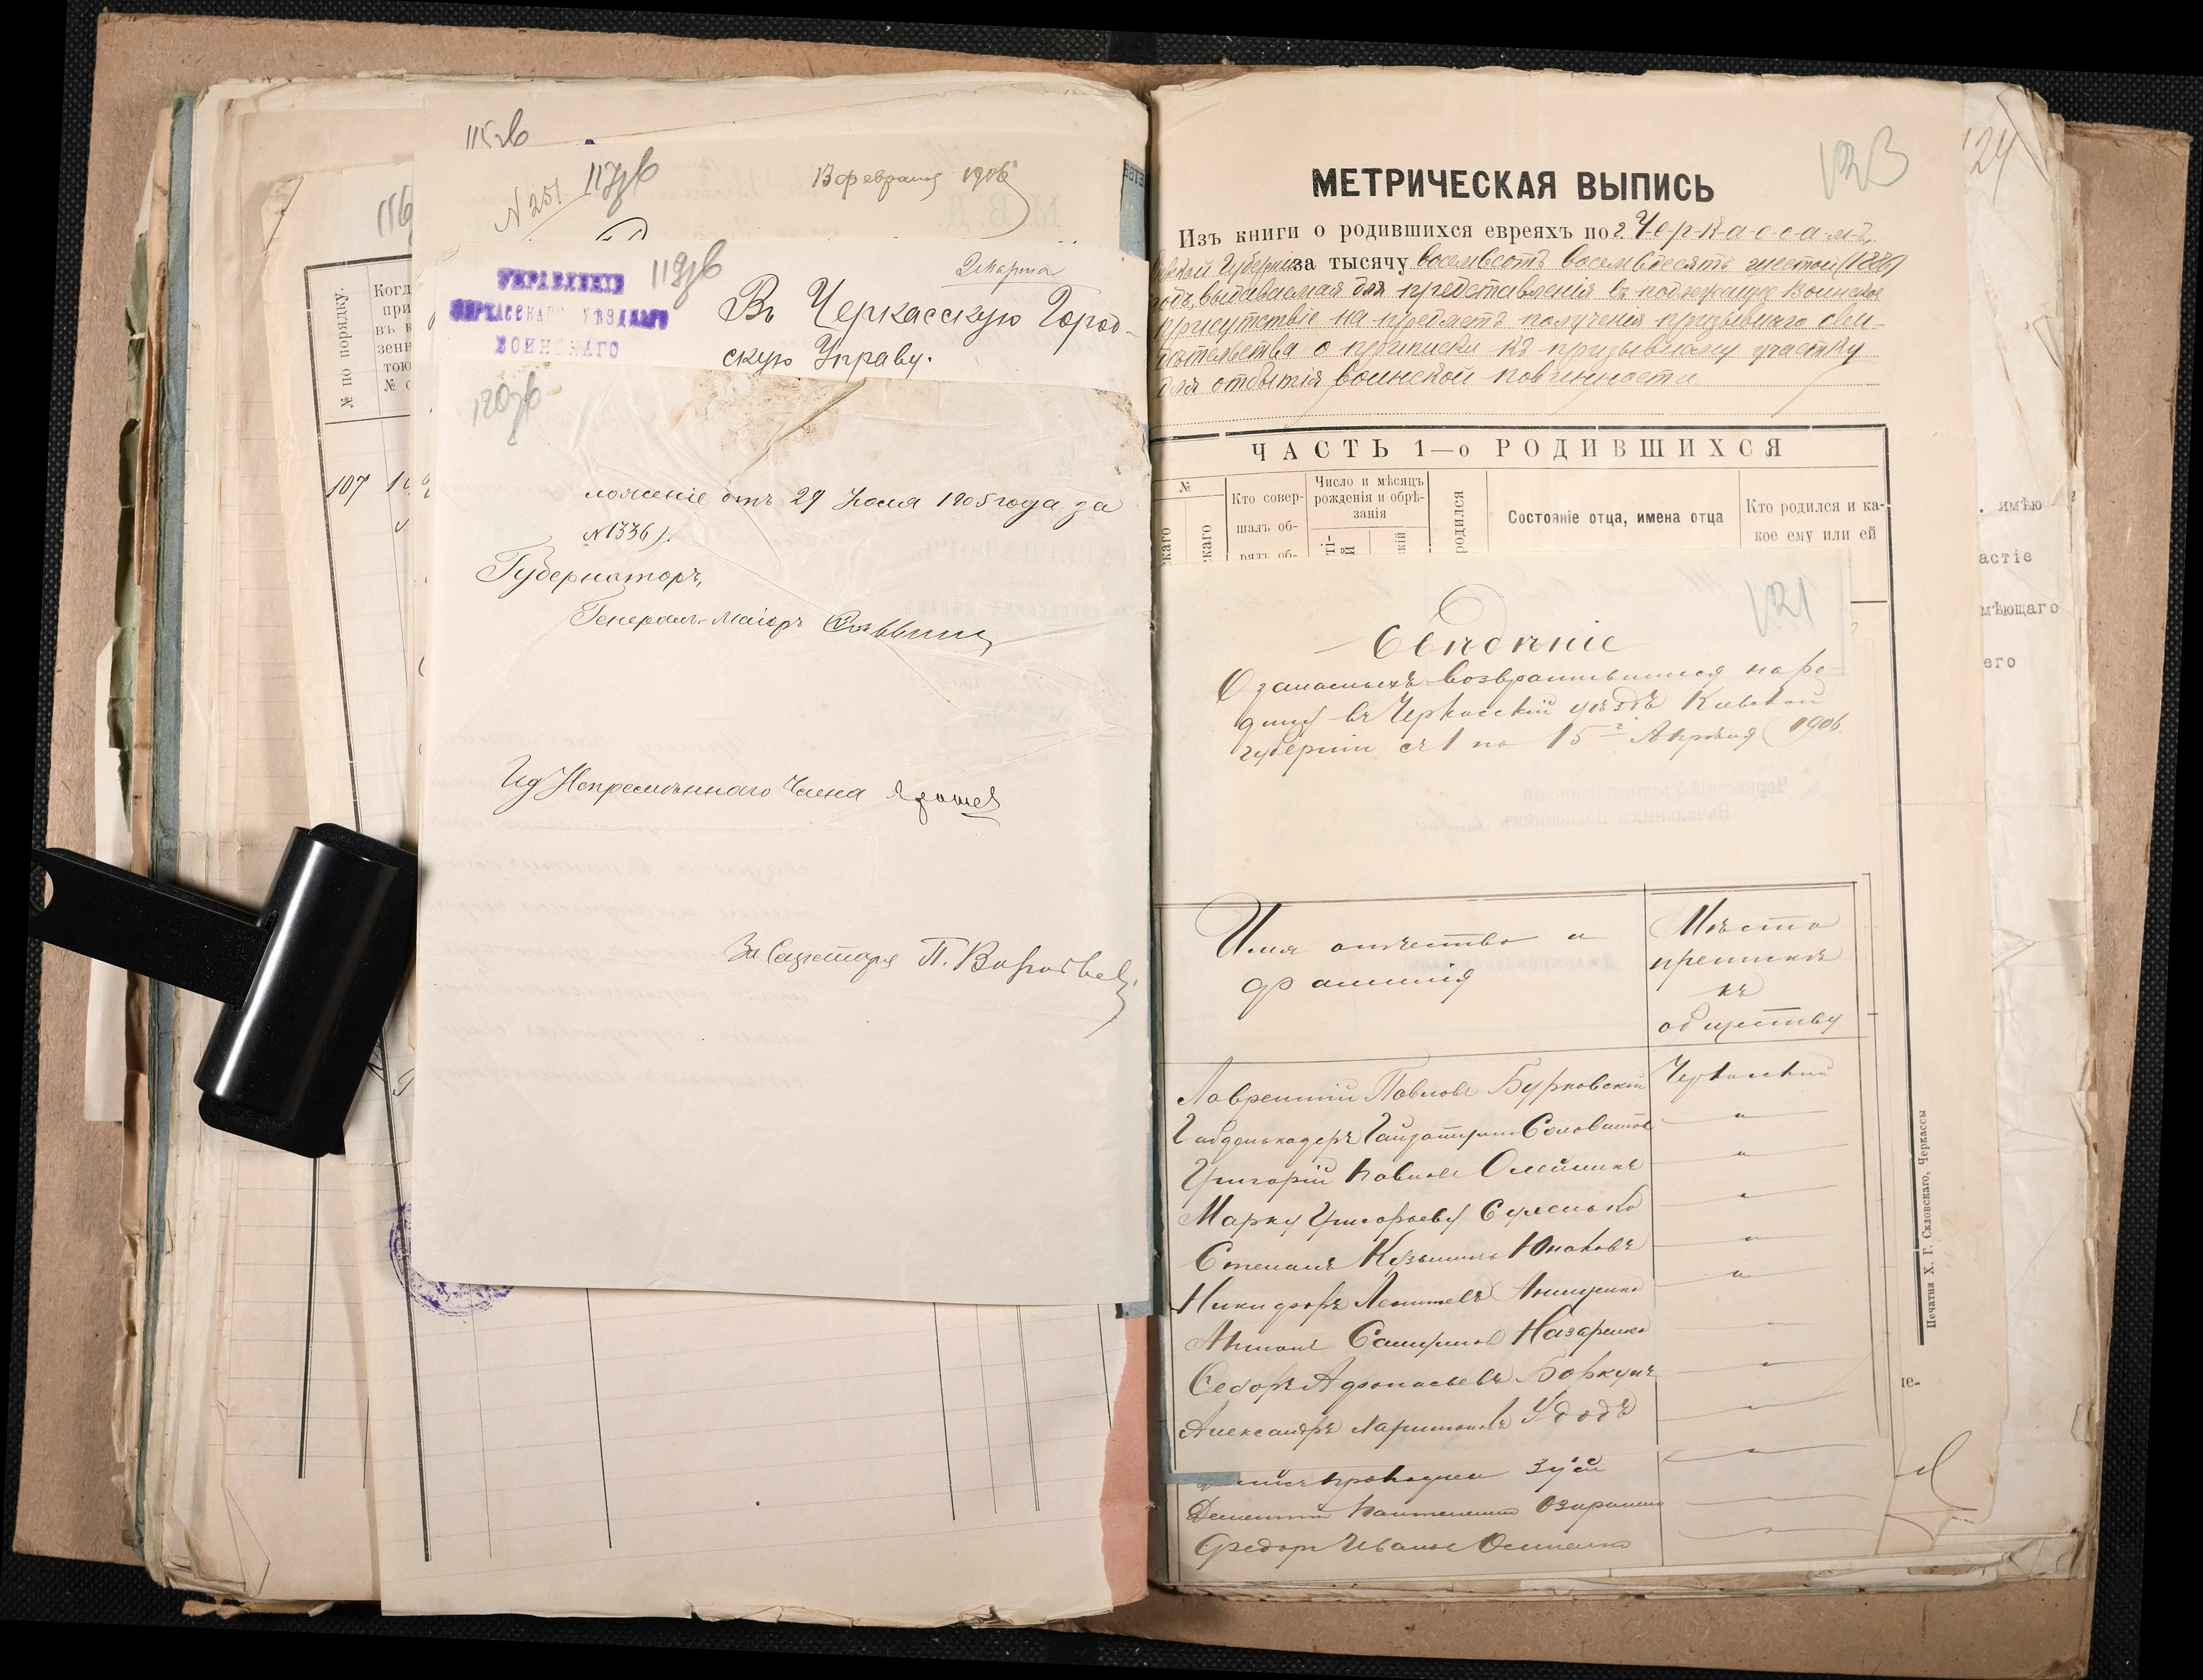 115зв
116
№ по порядку.
Когд
при
въ к
зенн
тою
№ с
107
№ 251
117зв
13 февраля 1906
119зв
2 Марта
УПРАВЛЕНІЕ
ЧЕРКАССКАГО УѢЗДНАГО
ВОИНСКАГО
Въ Черкасскую Город-
скую Управу.
120зв
ложеніе отъ 29 Іюля 1905 года за
№ 1336).
Губернаторъ,
Генералъ-маіоръ Саввичъ
Ид Непремѣннаго Члена
За Секретаря П.
123
124
МЕТРИЧЕСКАЯ ВЫПИСЬ
Изъ книги о родившихся евреяхъ по г. Ч-е-р-к-а-с-с-а-м-ъ,
губерніи за тысячу восемьсотъ восемьдесятъ шестой (1886)
годъ, выдаваемая для представленія въ подлежащее Воинское
присутствіе на предметъ полученія призывнаго сви-
дѣтельства о приписки къ призывному участку
для отбытія воинской повинности
ЧАСТЬ 1—о РОДИВШИХСЯ
№
каго
скаго
Кто совер-
шалъ об-
рядъ об-
Число и мѣсяцъ
рожденія и обрѣ-
занія
родился
Состояніе отца, имена отца
Кто родился и ка-
кое ему или ей
. имѣю
астіе
мѣющаго
его
121
Свѣдѣніе
О запасныхъ возвратившихся на ро-
дину въ Черкасскій уѣздъ Кіевской
губерніи съ 1 по 15 Апрѣля 1906
Имя отчество и
фамилія
Мѣсто
приписки
къ
обществу
Лаврентій Павловъ Бурковскій Черкасскій
Григорій Павловъ Олейникъ "
Марку Григорьеву "
Степанъ Кузьминъ Юнаковъ "
Никифоръ Леонтьевъ Онищенко "
Антонъ Назаренко
Федоръ Афонасьевъ Боркунъ "
Александръ Удодъ "
Зуй "
Дементій
Федоръ Ивановъ Осипенко
Печатня Х. Г. Скловскаго, Черкассы
іе-